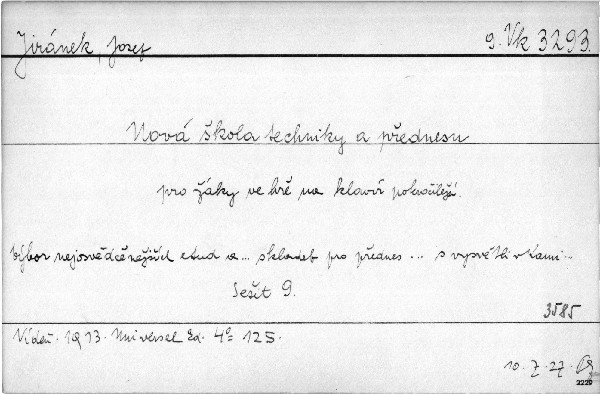 Jiránek, Josef
9. Vk 3293.
Nová škola techniky a přednesu
pro žáky ve hře na klavír pokročilejší.
Výbor nejosvědčenějších etud a... skladeb pro přednes ... s vysvětlivkami...
Sešit 9.
3585
Vídeň. 1913. Universel Ed. 4° 125.
10. 7. 27.
2220